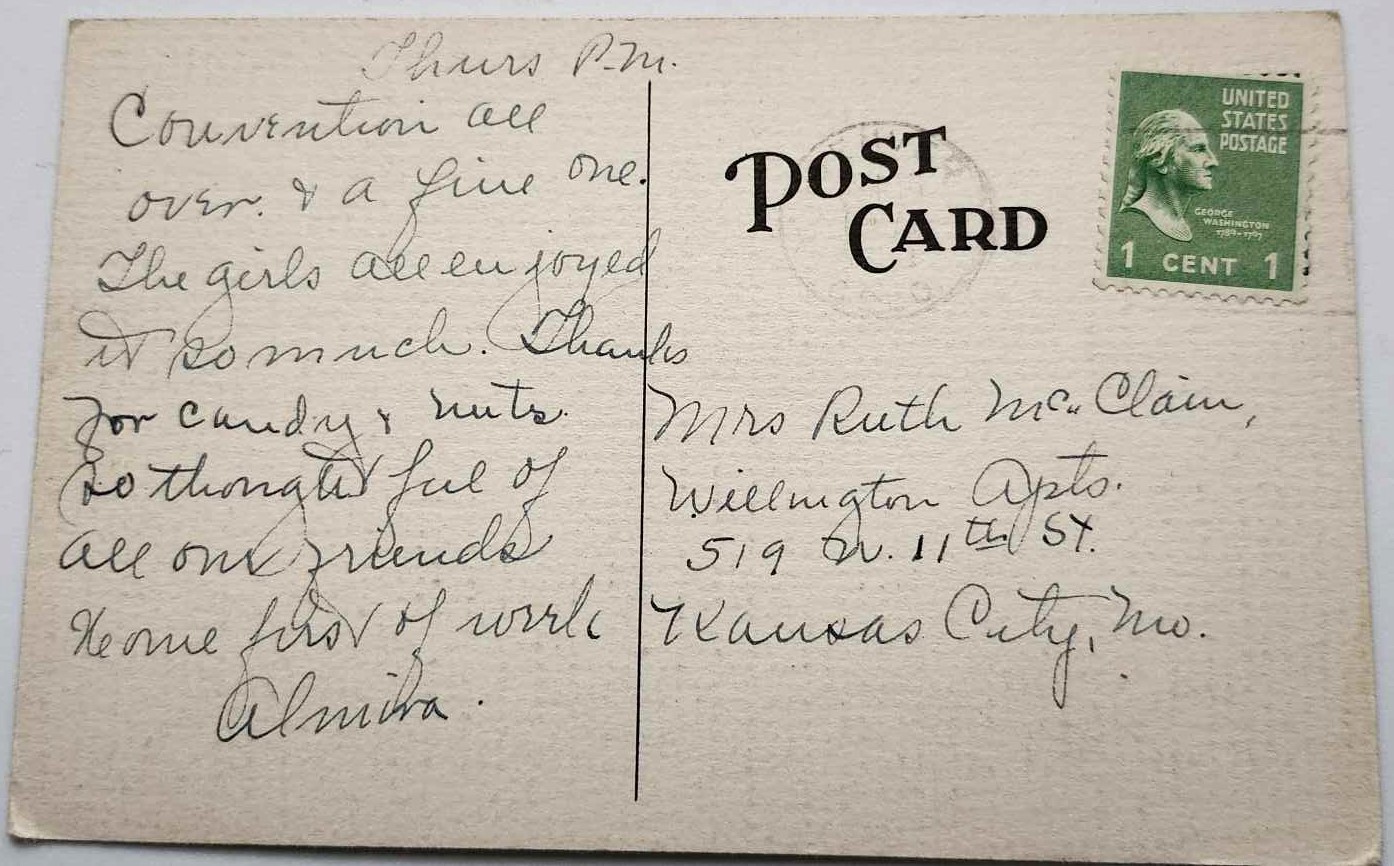 Thurs P.M.
Convention all
over. & a fine one.
The girls all enjoyed
it so much. Thanks
for candy & nuts.
so thought ful of
all our friends
Home first of week
Almira.
POST
CARD
UNITED
STATES
POSTAGE
GEORGE
WASHINGTON
1789-1797
1 CENT 1
Mrs Ruth Mc Clain,
Willington Apts.
519 W. 11th St.
Kansas City, Mo.